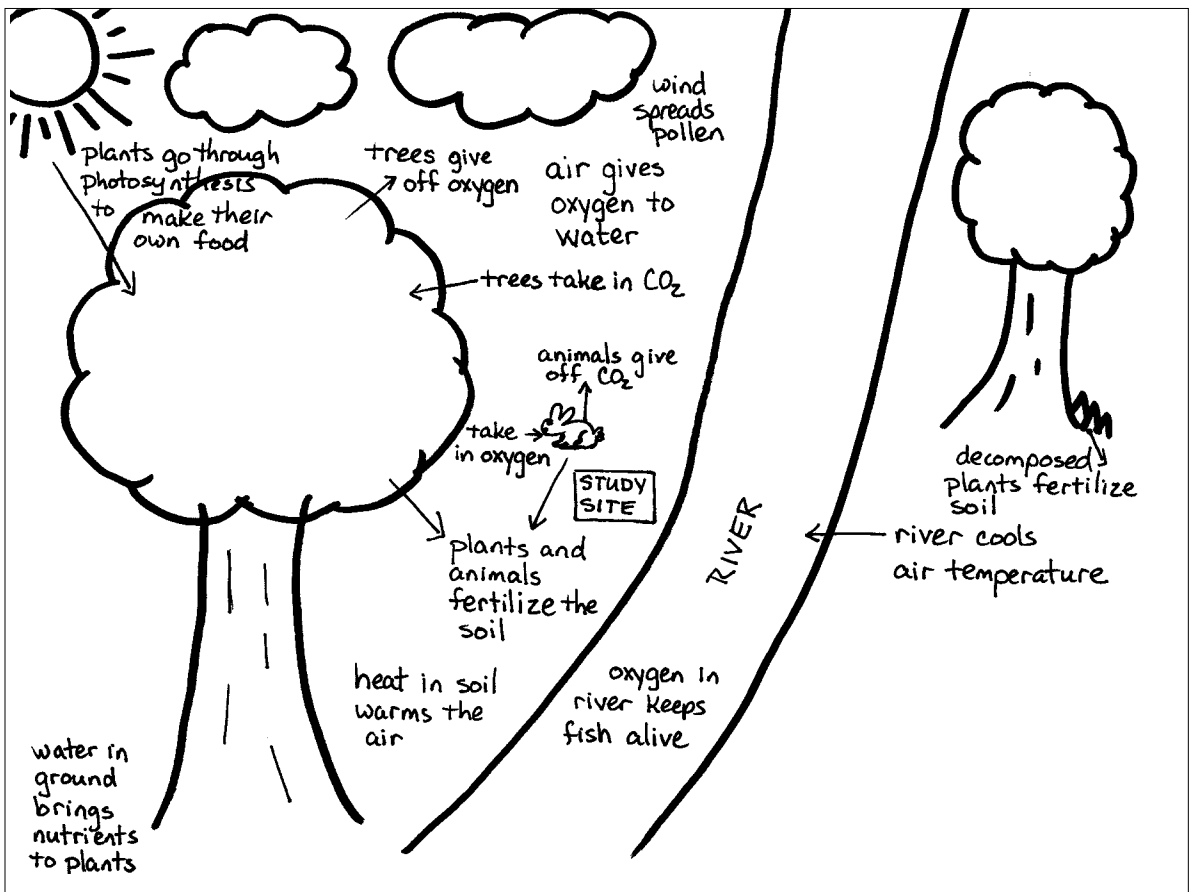 wind
spreads
pollen
plants go through
photosynthesis
to make their
own food
trees give
off oxygen
air gives
oxygen to
water
trees take in CO₂
animals give
off CO₂
take
in oxygen
STUDY
SITE
plants and
animals
fertilize the
soil
RIVER
decomposed
plants fertilize
soil
river cools
air temperature
heat in soil
warms the
air
oxygen in
river keeps
fish alive
water in
ground
brings
nutrients
to plants